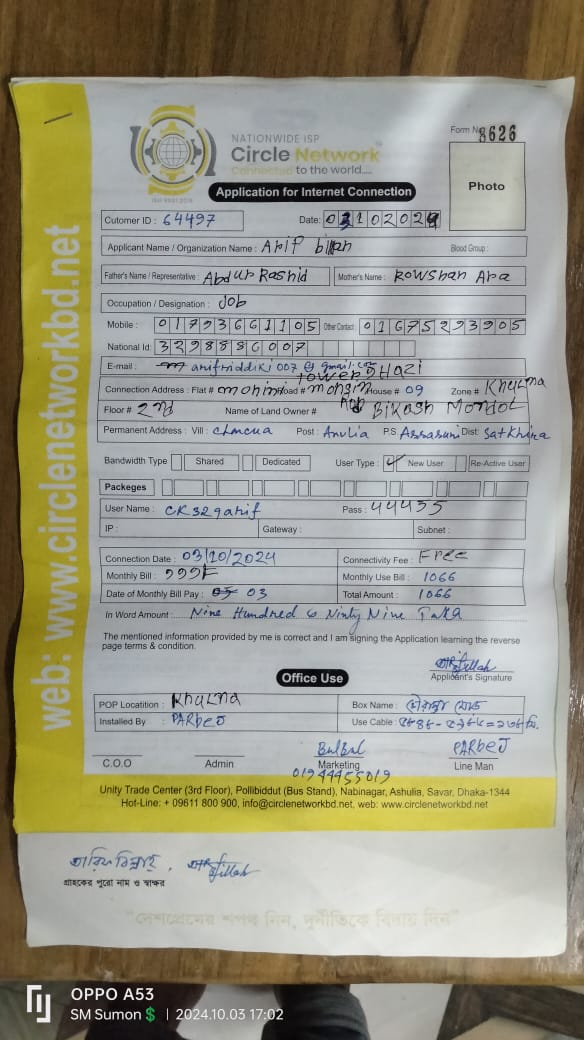 NATIONWIDE ISP
Circle Network
Connected to the world....
ISO 9001:2015
Form No 3626
Photo
Application for Internet Connection
Cutomer ID : 64497 Date: 03102024
Applicant Name / Organization Name : Arif billah Blood Group :
Father's Name / Representative : Abdur Rashid Mother's Name : Rowshan Ara
Occupation / Designation : Job
Mobile : 01793661105 Other Contact : 01675293905
National Id: 3298886007
E-mail : arifsiddiki007@gmail.com
tower
Connection Address : Flat # Mohini Road # House # 09 Zone # Khulna
Floor # 2nd Name of Land Owner # Bikash Mondol
Permanent Address : Vill : Post : Anulia P.S Assasuni Dist: Satkhira
Bandwidth Type Shared Dedicated User Type : ✓ New User Re-Active User
Packeges
User Name : CK329arif Pass : 44455
IP : Gateway : Subnet :
Connection Date : 03/10/2024 Connectivity Fee : Free
Monthly Bill : 999 Monthly Use Bill : 1066
Date of Monthly Bill Pay : 03 Total Amount : 1066
In Word Amount : Nine Hundred & Ninty Nine Taka
The mentioned information provided by me is correct and I am signing the Application learning the reverse
page terms & condition.
Applicant's Signature
Office Use
POP Locatition : Khulna Box Name :
Installed By : PARbeJ Use Cable :
Bulbul PARbeJ
C.O.O Admin Marketing Line Man
01944455019
Unity Trade Center (3rd Floor), Pollibiddut (Bus Stand), Nabinagar, Ashulia, Savar, Dhaka-1344
Hot-Line: + 09611 800 900, info@circlenetworkbd.net, web: www.circlenetworkbd.net
web: www.circlenetworkbd.net
আরিফ বিল্লাহ,
গ্রাহকের পুরো নাম ও স্বাক্ষর
"দেশপ্রেমের শপথ নিন, দুর্নীতিকে বিদায় দিন"
OPPO A53
SM Sumon💲 | 2024.10.03 17:02